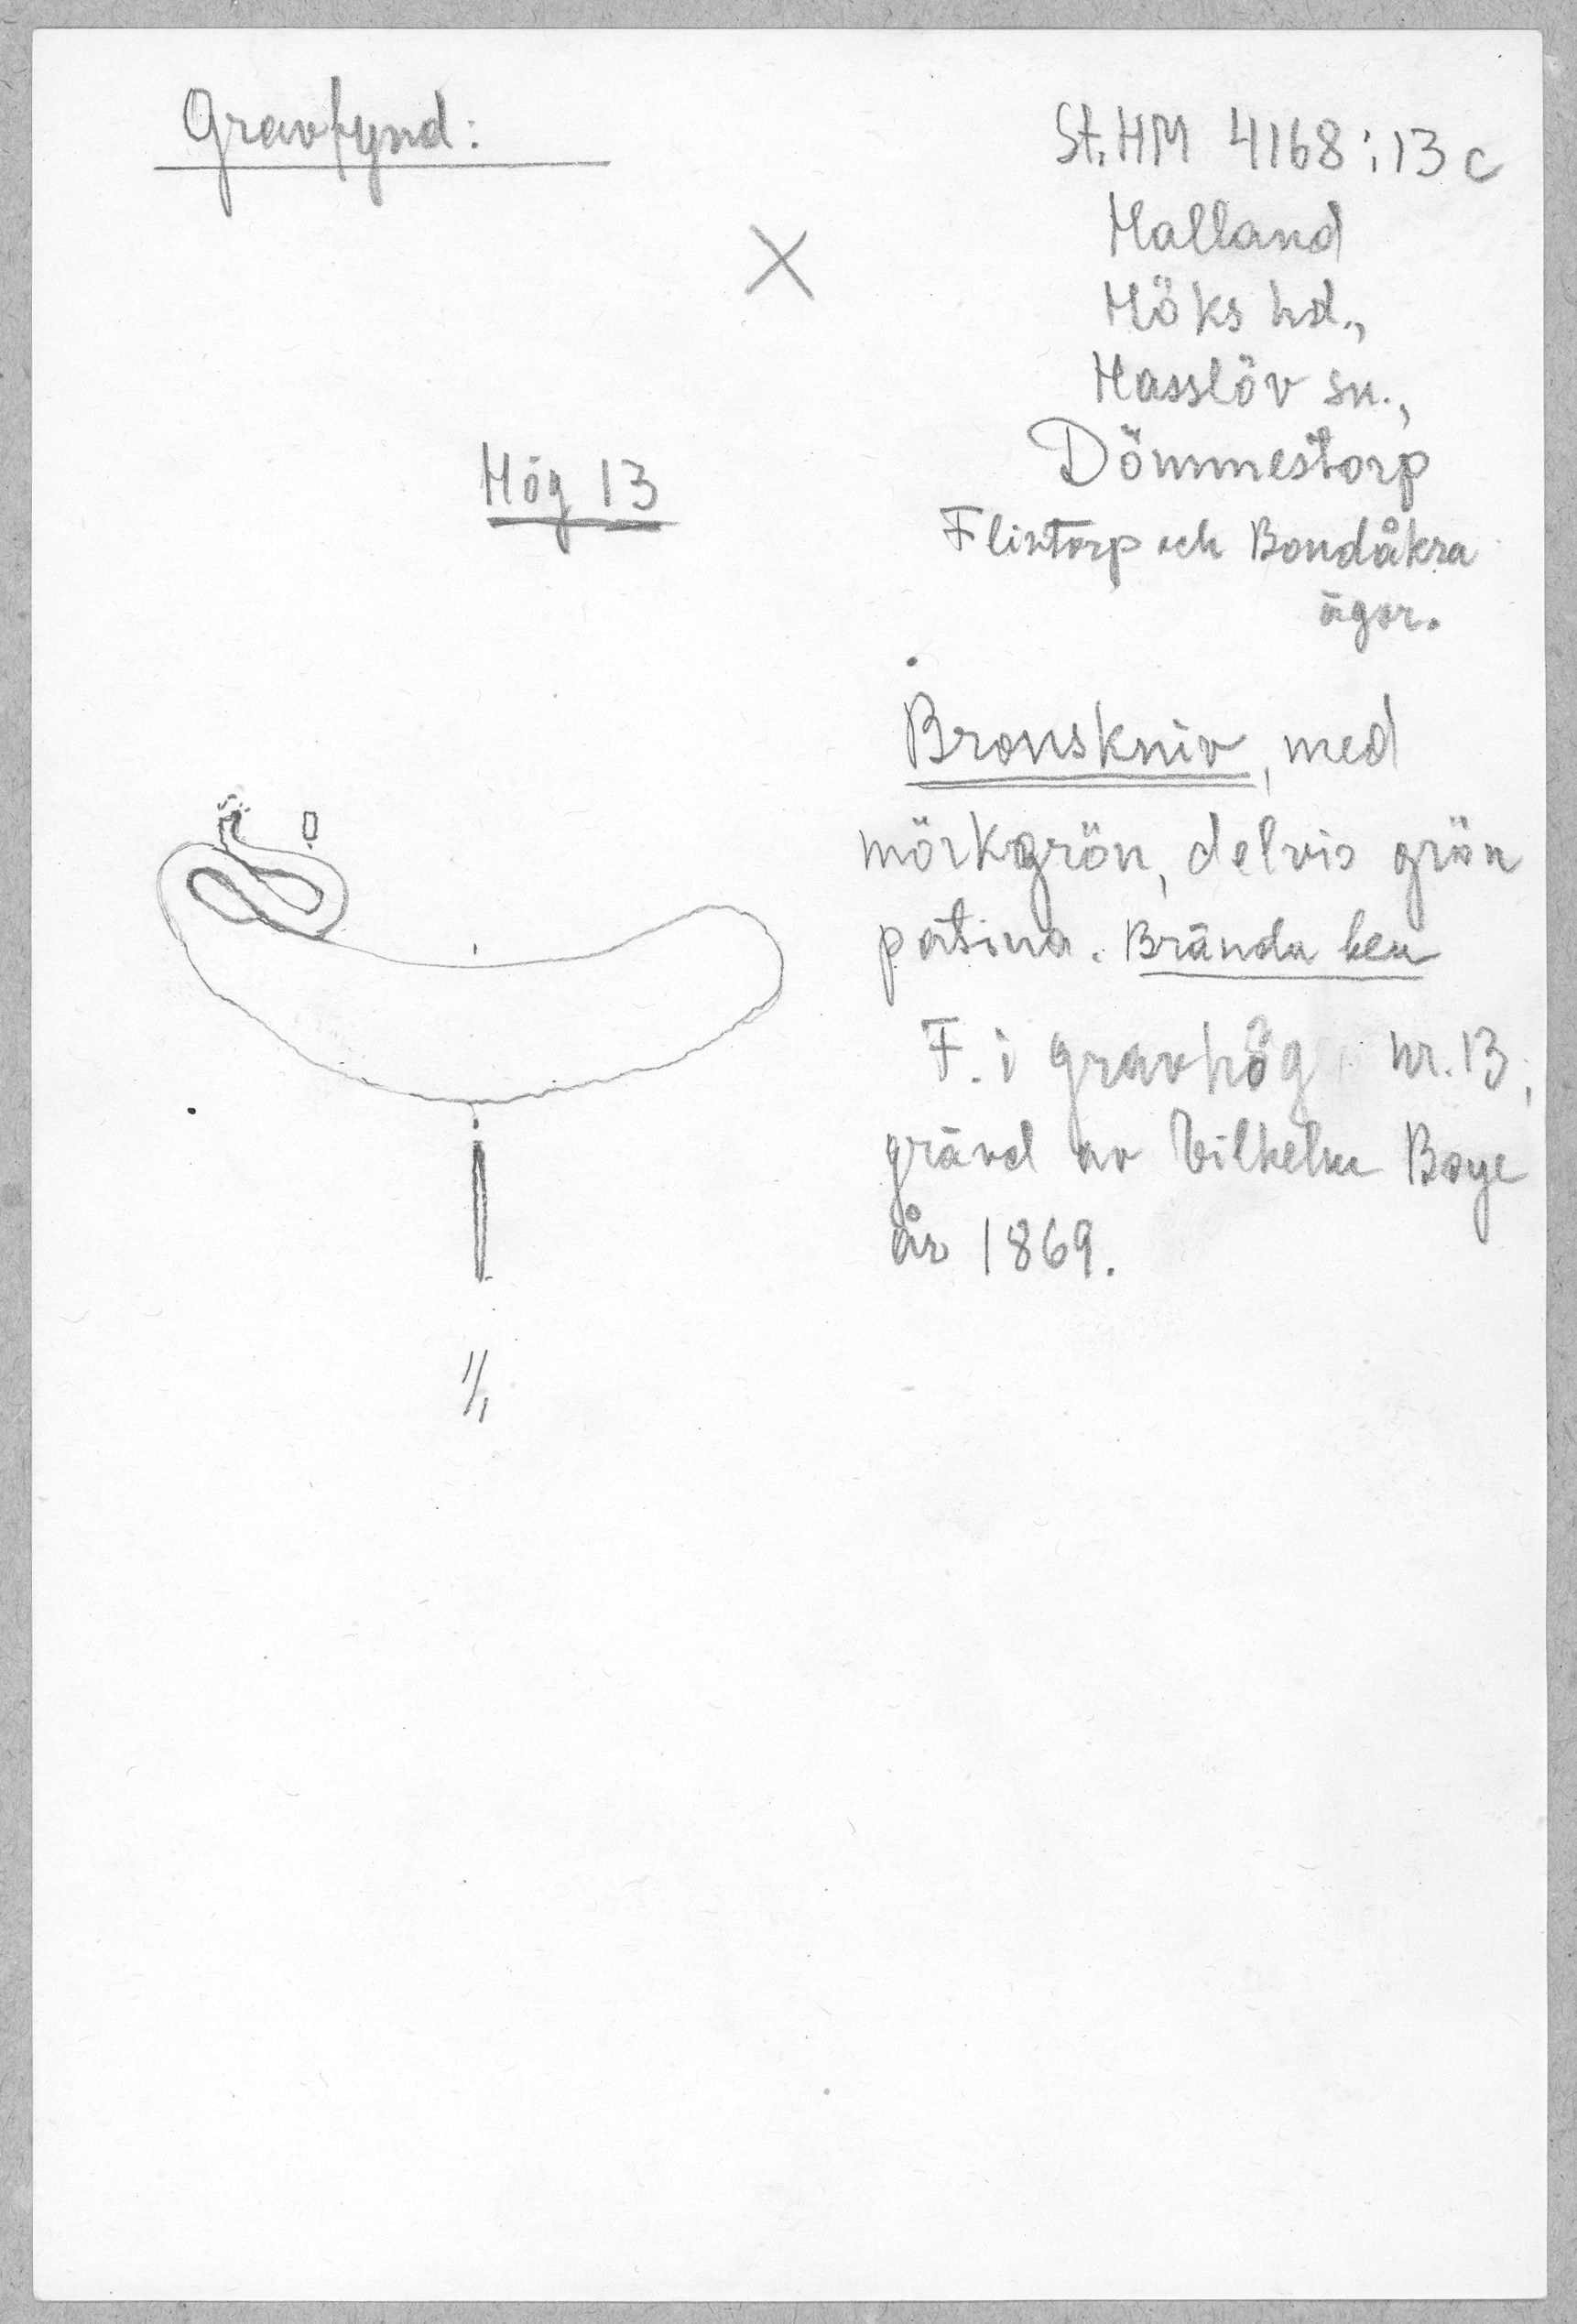 Gravfynd:
St. HM 4168:13c
Halland
X
Höks hd.,
Hasslöv sn.,
Dömmestorp
Hög 13
Flintorp och Bondåkra
ägor.
Bronskniv, med
mörkgrön, delvis grön
patina. Brända ben
F. i gravhög nr. 13,
grävd av Vilhelm Boye
år 1869.
1/1